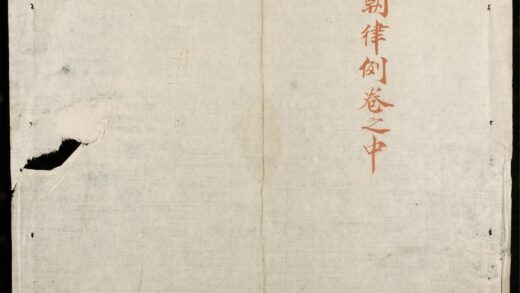 朝律例卷之中